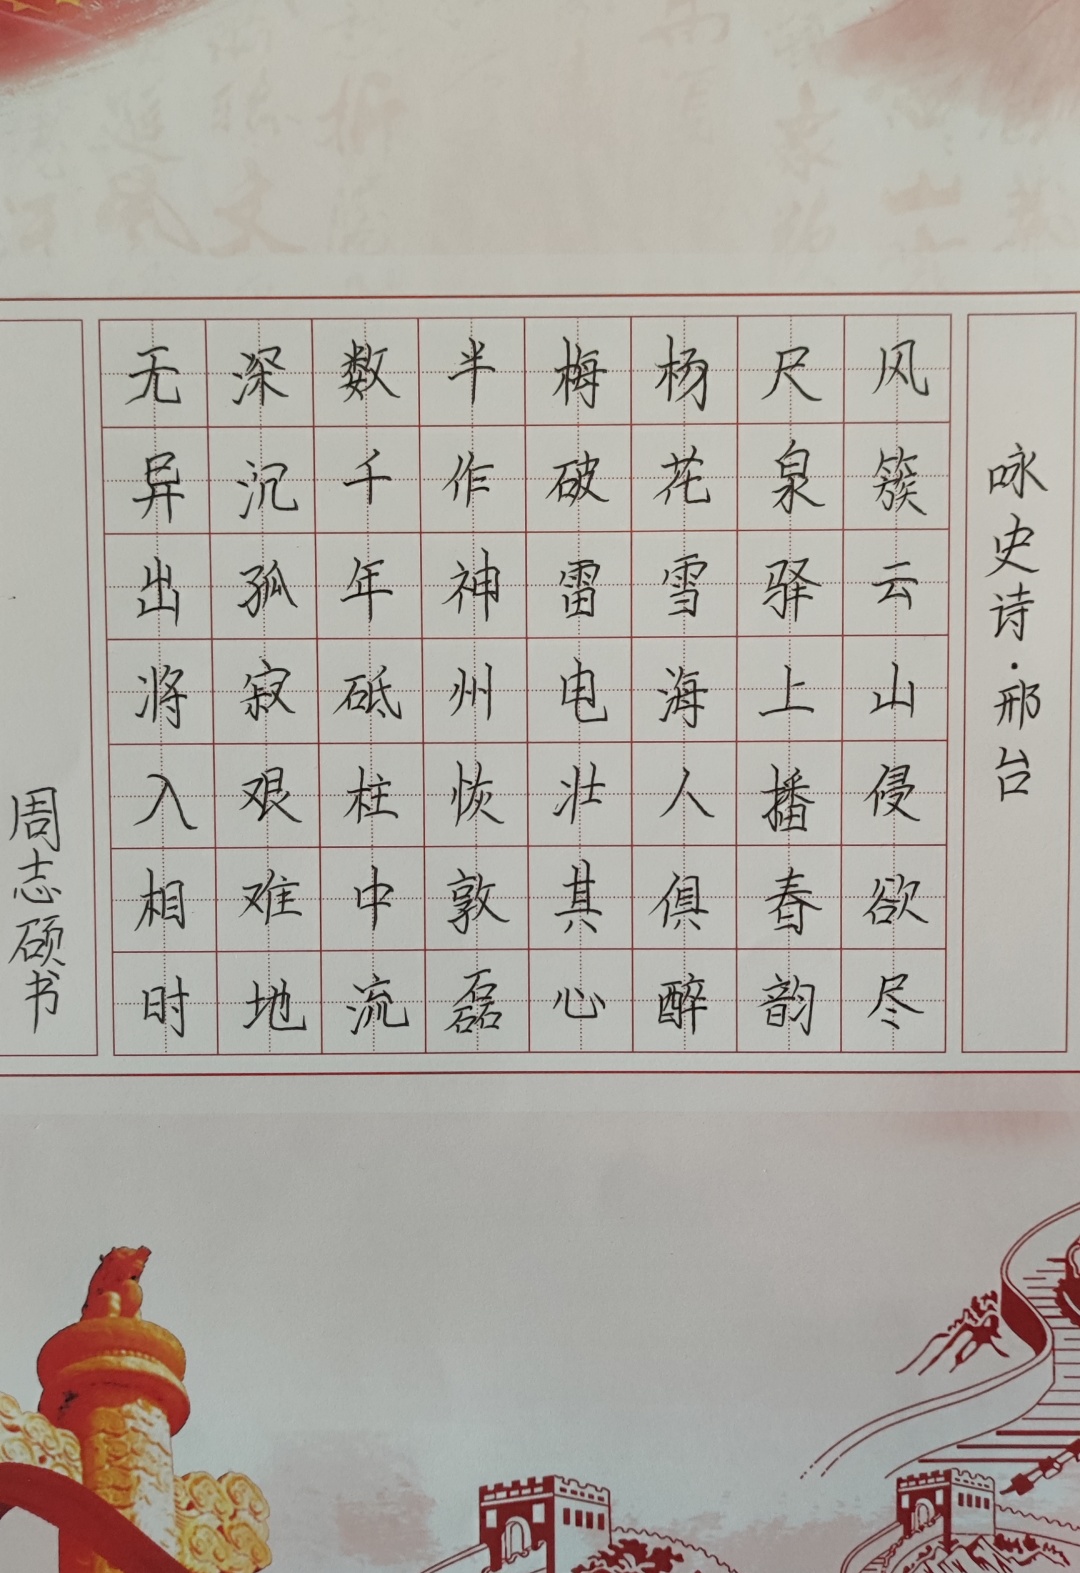 咏史诗·邢台
风簇云山侵欲尽
尺泉驿上播春韵
杨花雪海人俱醉
梅破雷电壮其心
半作神州恢敦磊
数千年砥柱中流
深沉孤寂艰难地
无异出将入相时
周志硕书